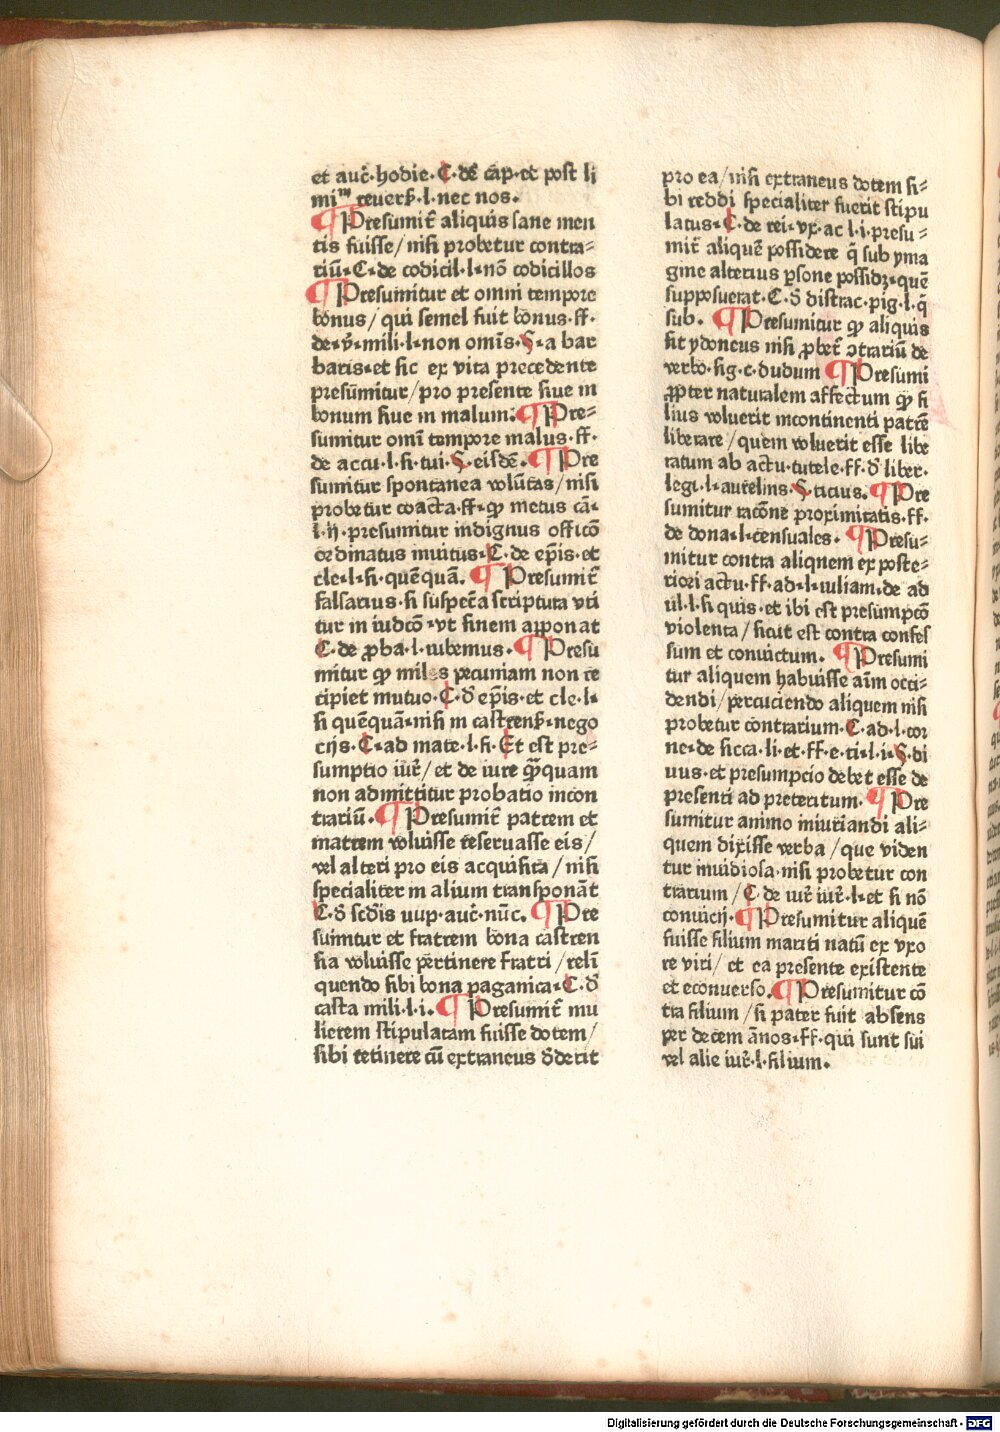 et auc̄·hodie·C·de᷑ cāp·et post li
miⁿⁱ reuerẜ·l·nec nos·
¶ Presumit᷑ aliquis sane men
tis fuisse/nisi probetur contra⸗
riū·C·de codicil·l·nō codicillos
¶ Presumitur et omni tempore
bonus/qui semel fuit bonus·ff·
de·v᷑·mili·l·non omīs·S·a bar
baris·et sic ex vita precedente
presūmitur/pro presente siue in
bonum siue in malum·¶ Pre⸗
sumitur omī tempore malus·ff·
de accu·l·si tui·S·eisdē·¶ Pre
sumitur spontanea volūtas/nisi
probetur coacta·ff·ꝙ metus cā·
l·ij·presumitur indignus officō
ordinatus inuitus·C·de ep̄is·et
cle·l·si·quēquā·¶ Presumit᷑
falsarius·si suspecta scriptura vti
tur in iudcō·vt finem aipon at
C·de ꝓba·l·iubemus·¶ Presu
mitur ꝙ miles pecuniam non re
cipiet mutuo·C·d᷑ ep̄is·et cle·l·
si quēquā·nisi in castrenẜ·nego
cijs·C·ad mate·l·si·Et est pre⸗
sumptio iur᷑/et de iure q̄quam
non admittitur probatio incon
trariū·¶ Presumit᷑ patrem et
matrem voluisse reseruasse eis/
vel alteri pro eis acquisita/nisi
specialiter in alium transponāt
C·d᷑ scd̄is nup·auc̄·nūc·¶ Pre
suimtur et fratrem bona castren
sia voluisse pertinere fratri/reli̅
quendo sibi bona paganica·C·d᷑
casta mili·l·i·¶ Presumit᷑ mu
lierem stipulatam fuisse dotem/
sibi retinere cū extraneus d᷑derit
pro ea/nisi extraneus dotem si⸗
bi reddi specialiter fuerit stipu
latus·C·de rei·vx·ac·l·i·presu⸗
mit᷑ aliquē possidere q̄ sub yma
gine alterius ꝑsone possidꝫ·quē
supposuerat·C·d᷑ distrac·pig·l·q̄
sub·¶ Presumitur ꝙ aliquis
sit ydoneus nisi ꝓbet᷑ ꝯtrariū de
verbo·sig·c·dudum ¶ Presumi
ꝓpter naturalem affectum ꝙ fi
lius voluerit incontinenti patrē
liberare/quem voluerit esse libe
ratum ab actu·tutele·ff·d᷑ liber·
legi·l·aurelius·S·ticius·¶ Pre
sumitur racōne proximitatis·ff·
de dona·l·censuales·¶ Presu⸗
mitur contra aliqnem ex poste⸗
riori actu·ff·ad·l·iuliam·de ad
ul·l·si quis·et ibi est presumpcō
violenta/sicut est contra confes
sum et conuictum·¶ Presumi
tur aliquem habuisse aīm occi⸗
dendi/percuciendo aliquem nisi
probetur contrarium·C·ad·l·cor
ne·de sicca·li·et·ff·e·ti·l·i·S·di
uus·et presumpcio debet esse de
presenti ad preteritum·¶ Pre
sumitur animo iniuriandi ali⸗
quem dixisse verba/que viden
tur inuidiosa·nisi probetur con
trarium/C·de iur᷑ iur᷑·l·et si nō
conuicij·¶ Presumitur aliquē
fuisse filium mariti natū ex vxo
re viri/et ea presente existente
et econuerso·¶ Presumitur cō
tra filium/si pater fuit absens
per decem ānos·ff·qui sunt sui
vel alie iur᷑·l·filium·
Digitalisierung gefördert durch die Deutsche Forschungsgemeinschaft - DFG